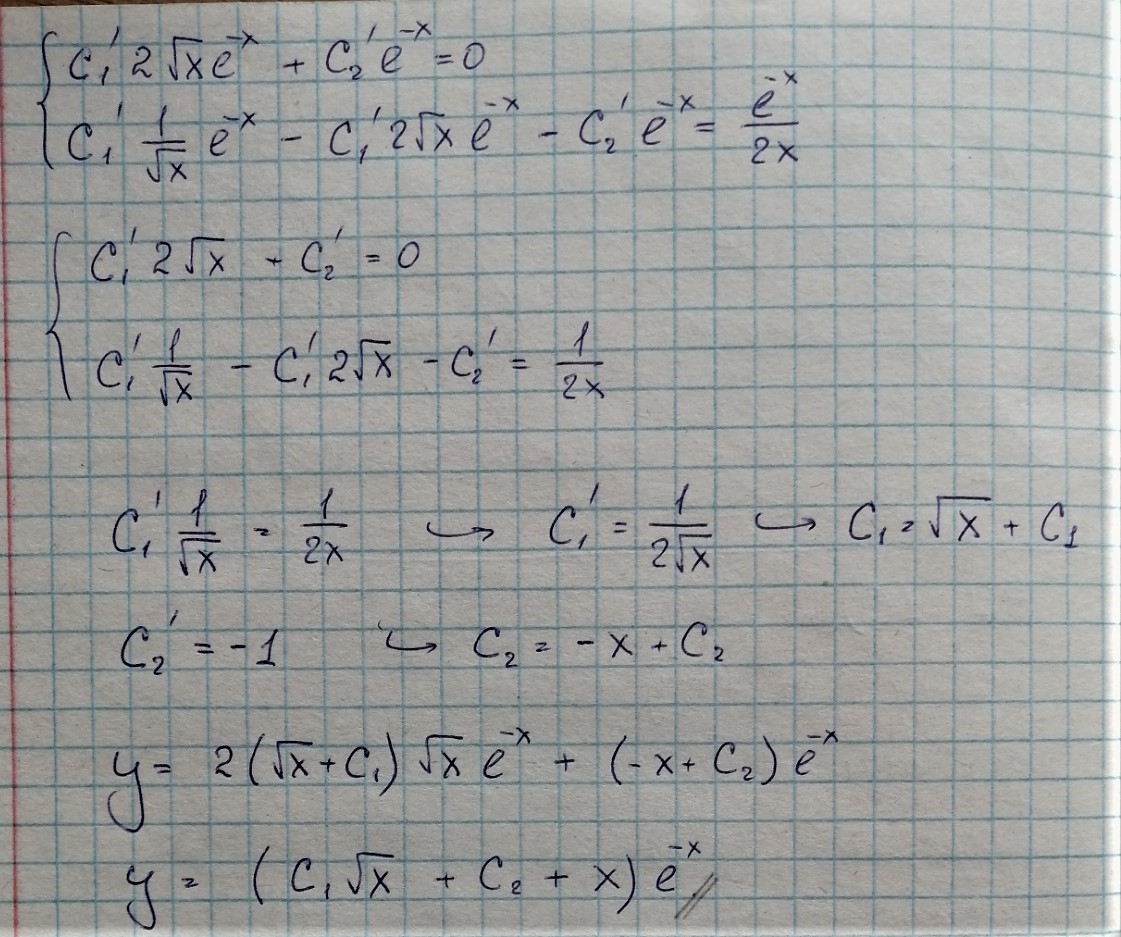 { C₁' 2√x e^(-x) + C₂' e^(-x) = 0
C₁' 1/√x e^(-x) - C₁' 2√x e^(-x) - C₂' e^(-x) = e^(-x)/2x
{ C₁' 2√x + C₂' = 0
C₁' 1/√x - C₁' 2√x - C₂' = 1/2x
C₁' 1/√x = 1/2x ↪ C₁' = 1/2√x ↪ C₁ = √x + C₁
C₂' = -1 ↪ C₂ = -x + C₂
y = 2(√x + C₁) √x e^(-x) + (-x + C₂) e^(-x)
y = (C₁√x + C₂ + x) e^(-x) //